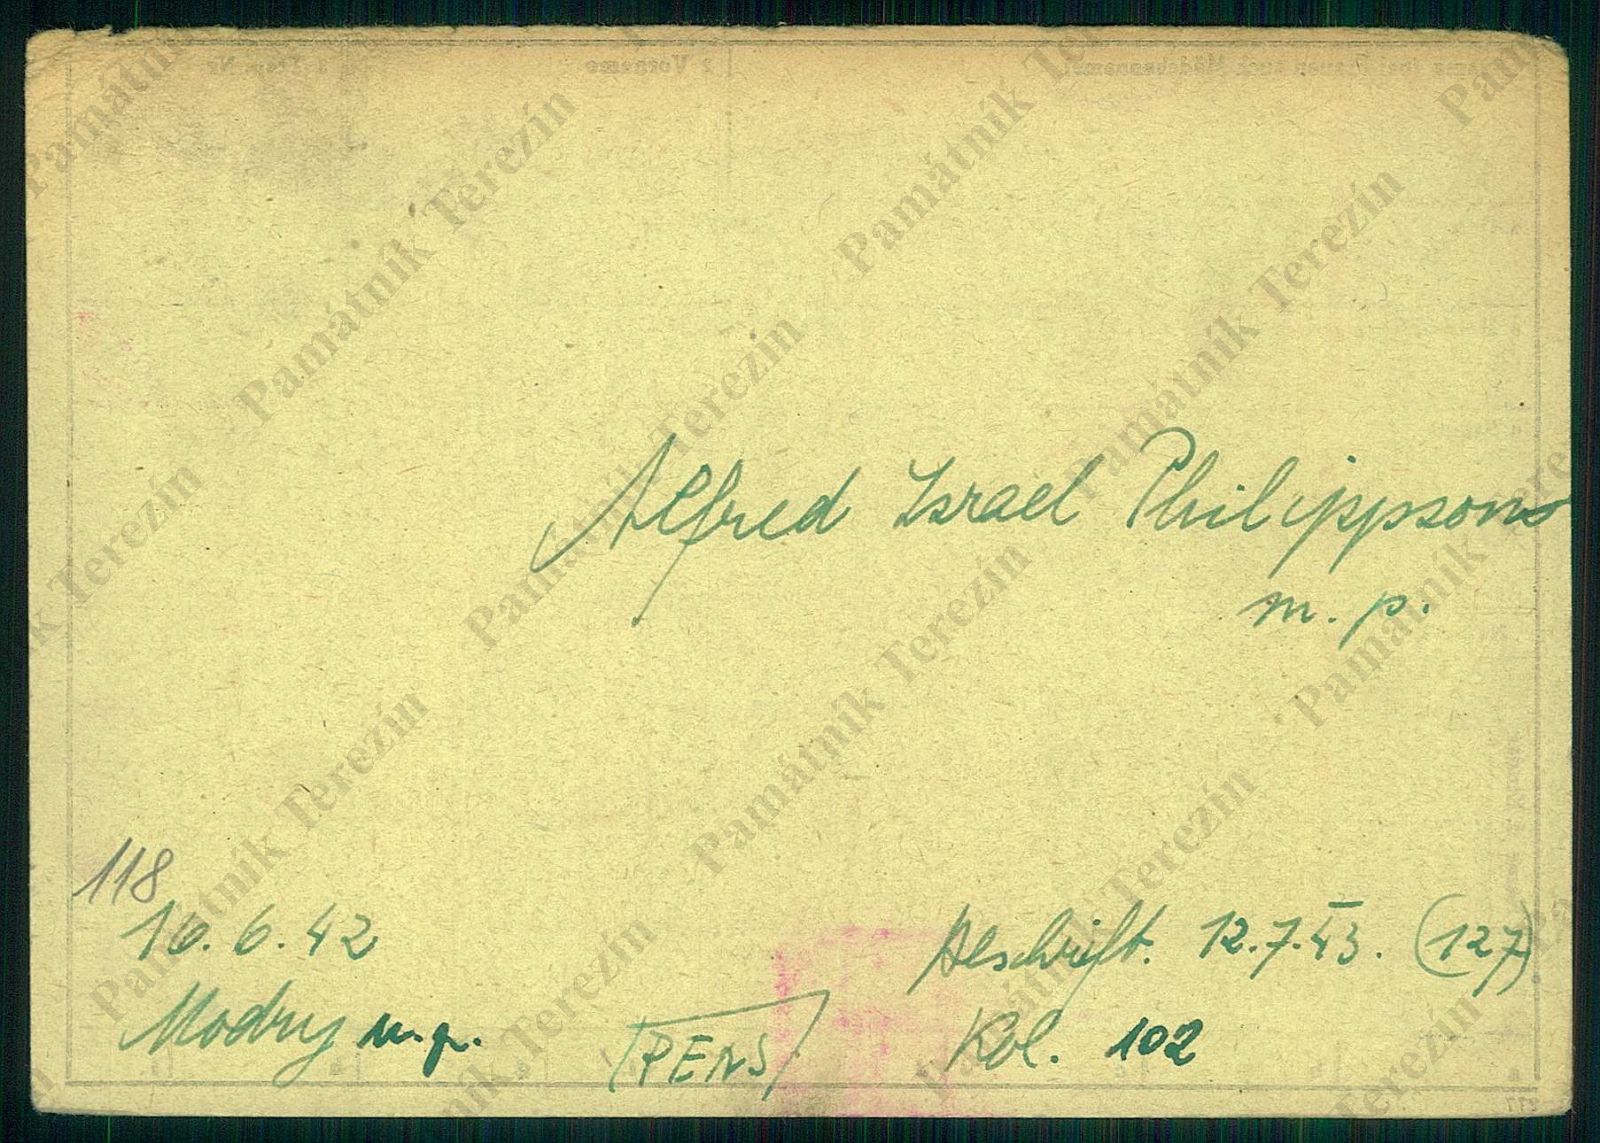 Alfred Israel Philippson
m. p.
118
16. 6. 42
Modry m. p.
PENS
Abschrift. 12. 7. 43. (127)
Kol. 102
Památník Terezín